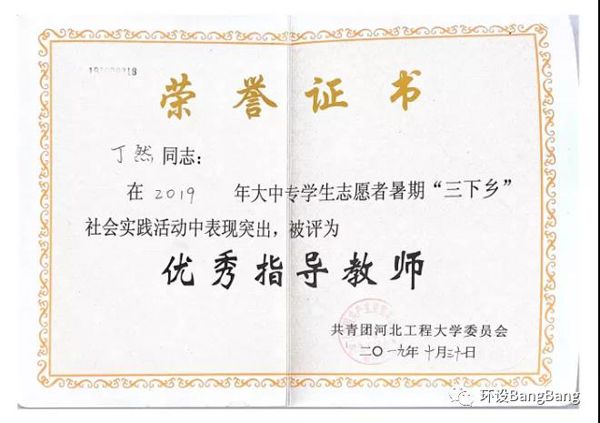 荣誉证书
丁然同志：
在2019 年大中专学生志愿者暑期“三下乡”
社会实践活动中表现突出，被评为
优秀指导教师
共青团河北工程大学委员会
二〇一九年十月三十日
环设BangBang